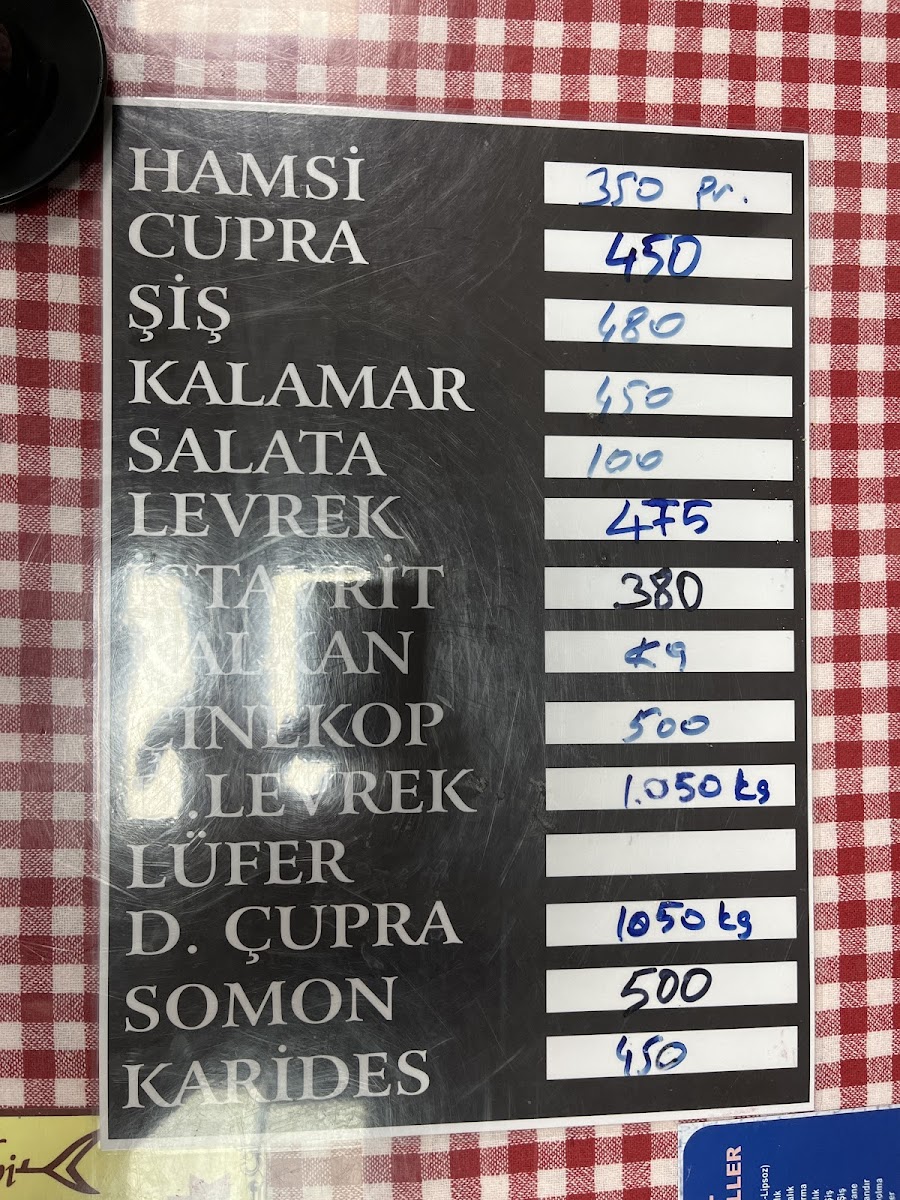 HAMSİ 350 pr.
CUPRA 450
ŞİŞ 480
KALAMAR 450
SALATA 100
LEVREK 475
İSTAVRİT 380
KALKAN Kg
ÇİNEKOP 500
D.LEVREK 1.050 kg
LÜFER
D. ÇUPRA 1050 kg
SOMON 500
KARİDES 450